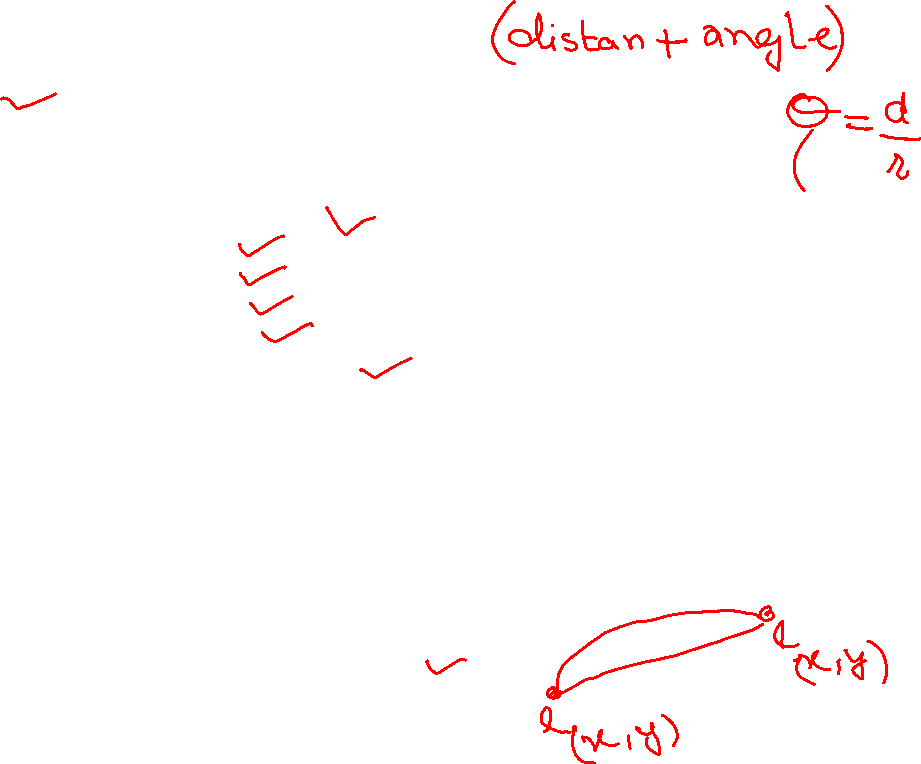 (distan + angle)
θ = d/r
(x,y)
(x,y)